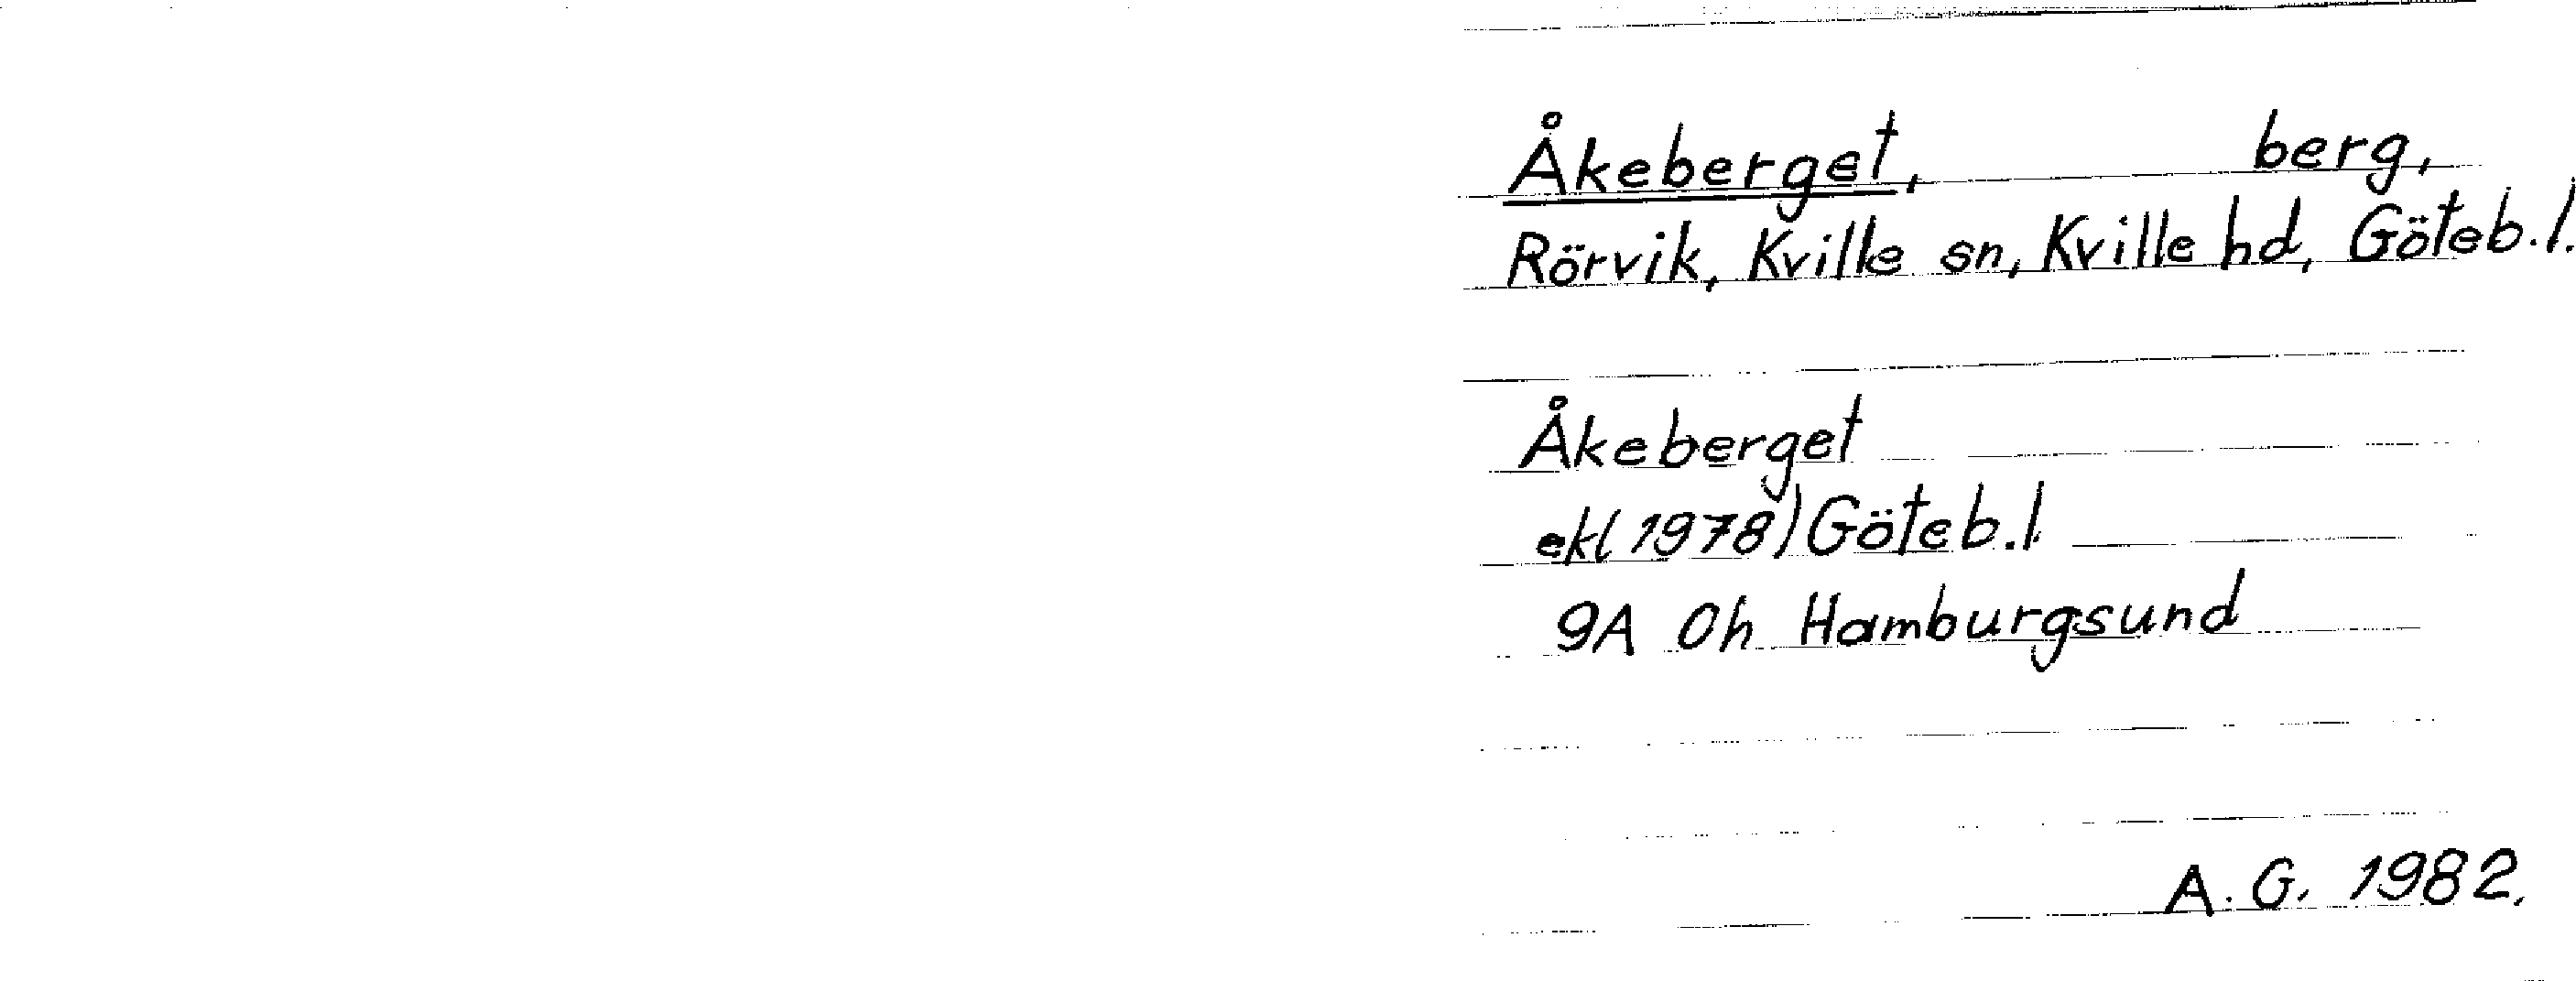 Åkeberget, berg,
Rörvik, Kville sn, Kville hd, Göteb.l.
Åkeberget
ekl 1978) Göteb.l.
9A 0h Hamburgsund
A.G. 1982.